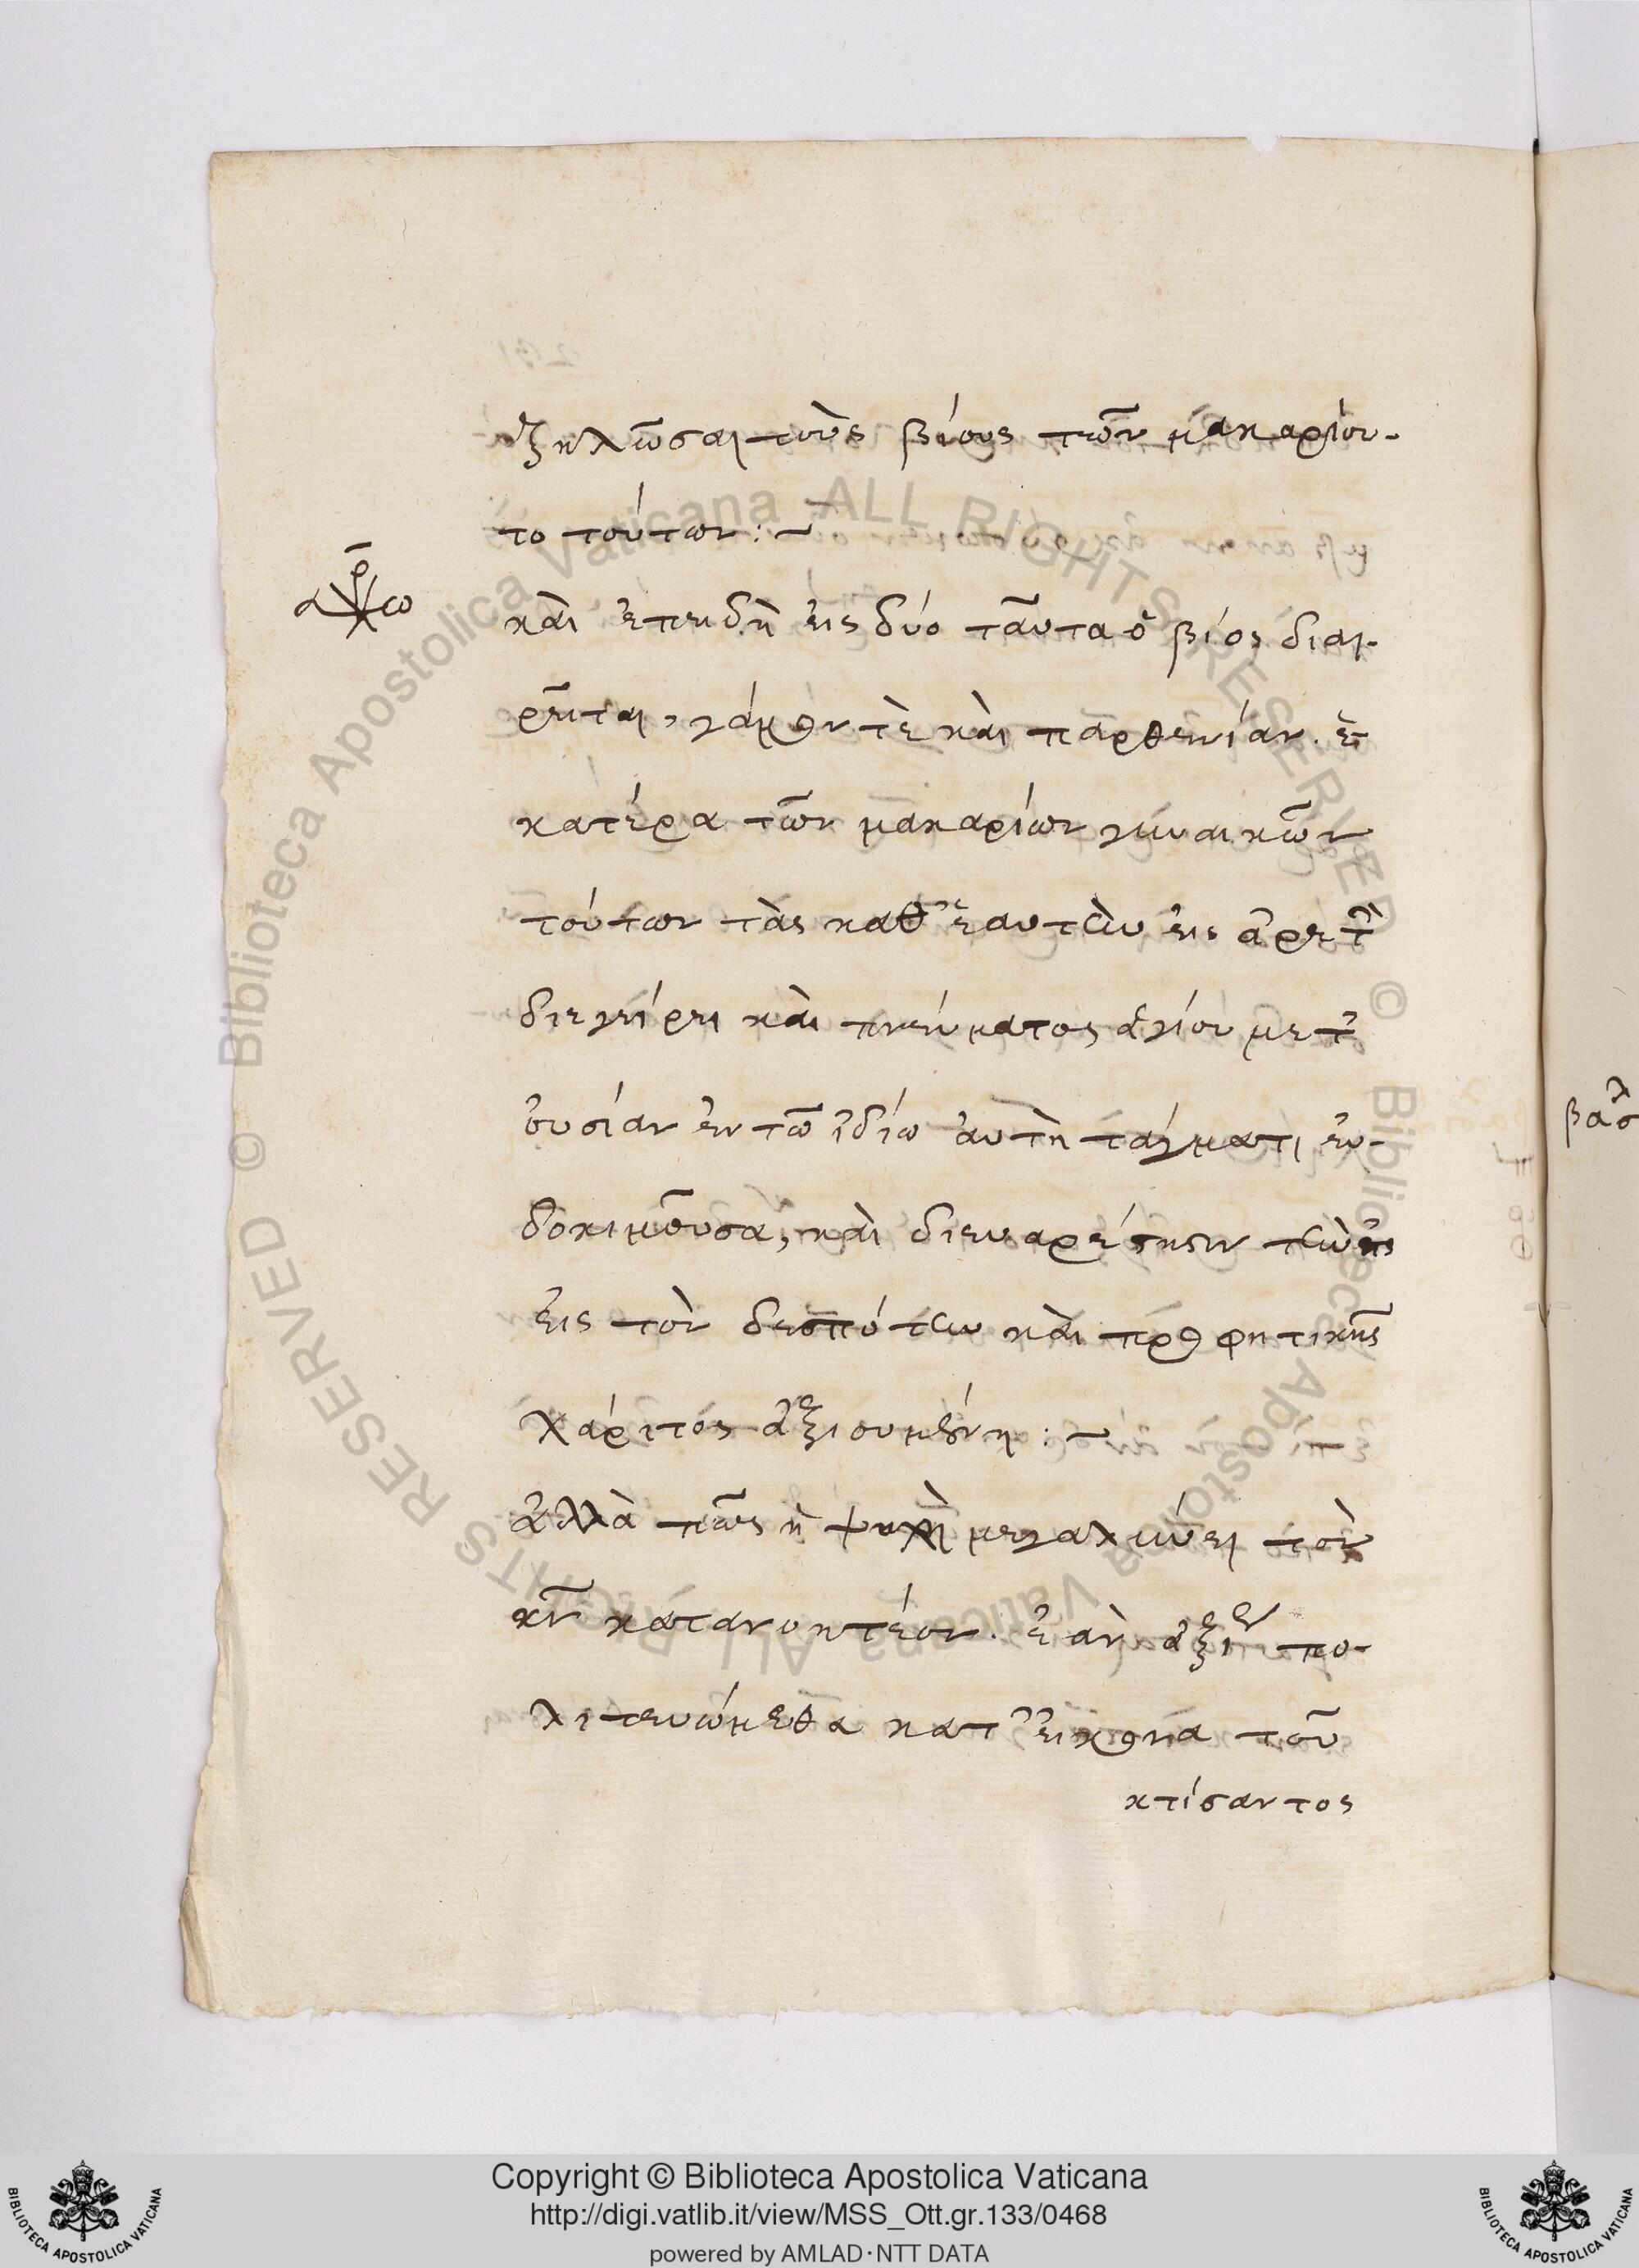 ζηλῶσαι τοὺς βίους τῶν μακαρίου-
το τούτων:~
καὶ ἐπειδὴ εἰς δύο ταῦτα ὁ βίος διαι-
ρεῖται, γάμον τὲ καὶ παρθενίαν. ἐ-
κατέρα τῶν μακαρίων γυναικῶν
τούτων τὰς καθ' ἑαυτὴν εἰς ἀρετ
διεγείρει καὶ πνεύματος ἁγίου μετ
ουσίαν ἐν τῶ ἰδίω αὐτὴ τάγματι εὐ-
δοκιμοῦσα, καὶ διευαρέστησιν τὴν
εἰς τὸν δεσπότην καὶ προφητικῆς
χάριτος ἀξιουμένη:~
ἀλλὰ πῶς ἡ ψυχὴ μεγαλύνει τὸν
κν κατανοητέον. ἐὰν ἀξι πο-
λιτευώμεθα κατ' εἰκόνα τοῦ
κτίσαντος
βασλ
Copyright © Biblioteca Apostolica Vaticana
http://digi.vatlib.it/view/MSS_Ott.gr.133/0468
powered by AMLAD·NTT DATA
BIBLIOTECA APOSTOLICA VATICANA
BIBLIOTECA APOSTOLICA VATICANA
© Biblioteca Apostolica Vaticana ALL RIGHTS RESERVED
© Biblioteca Apostolica Vaticana ALL RIGHTS RESERVED